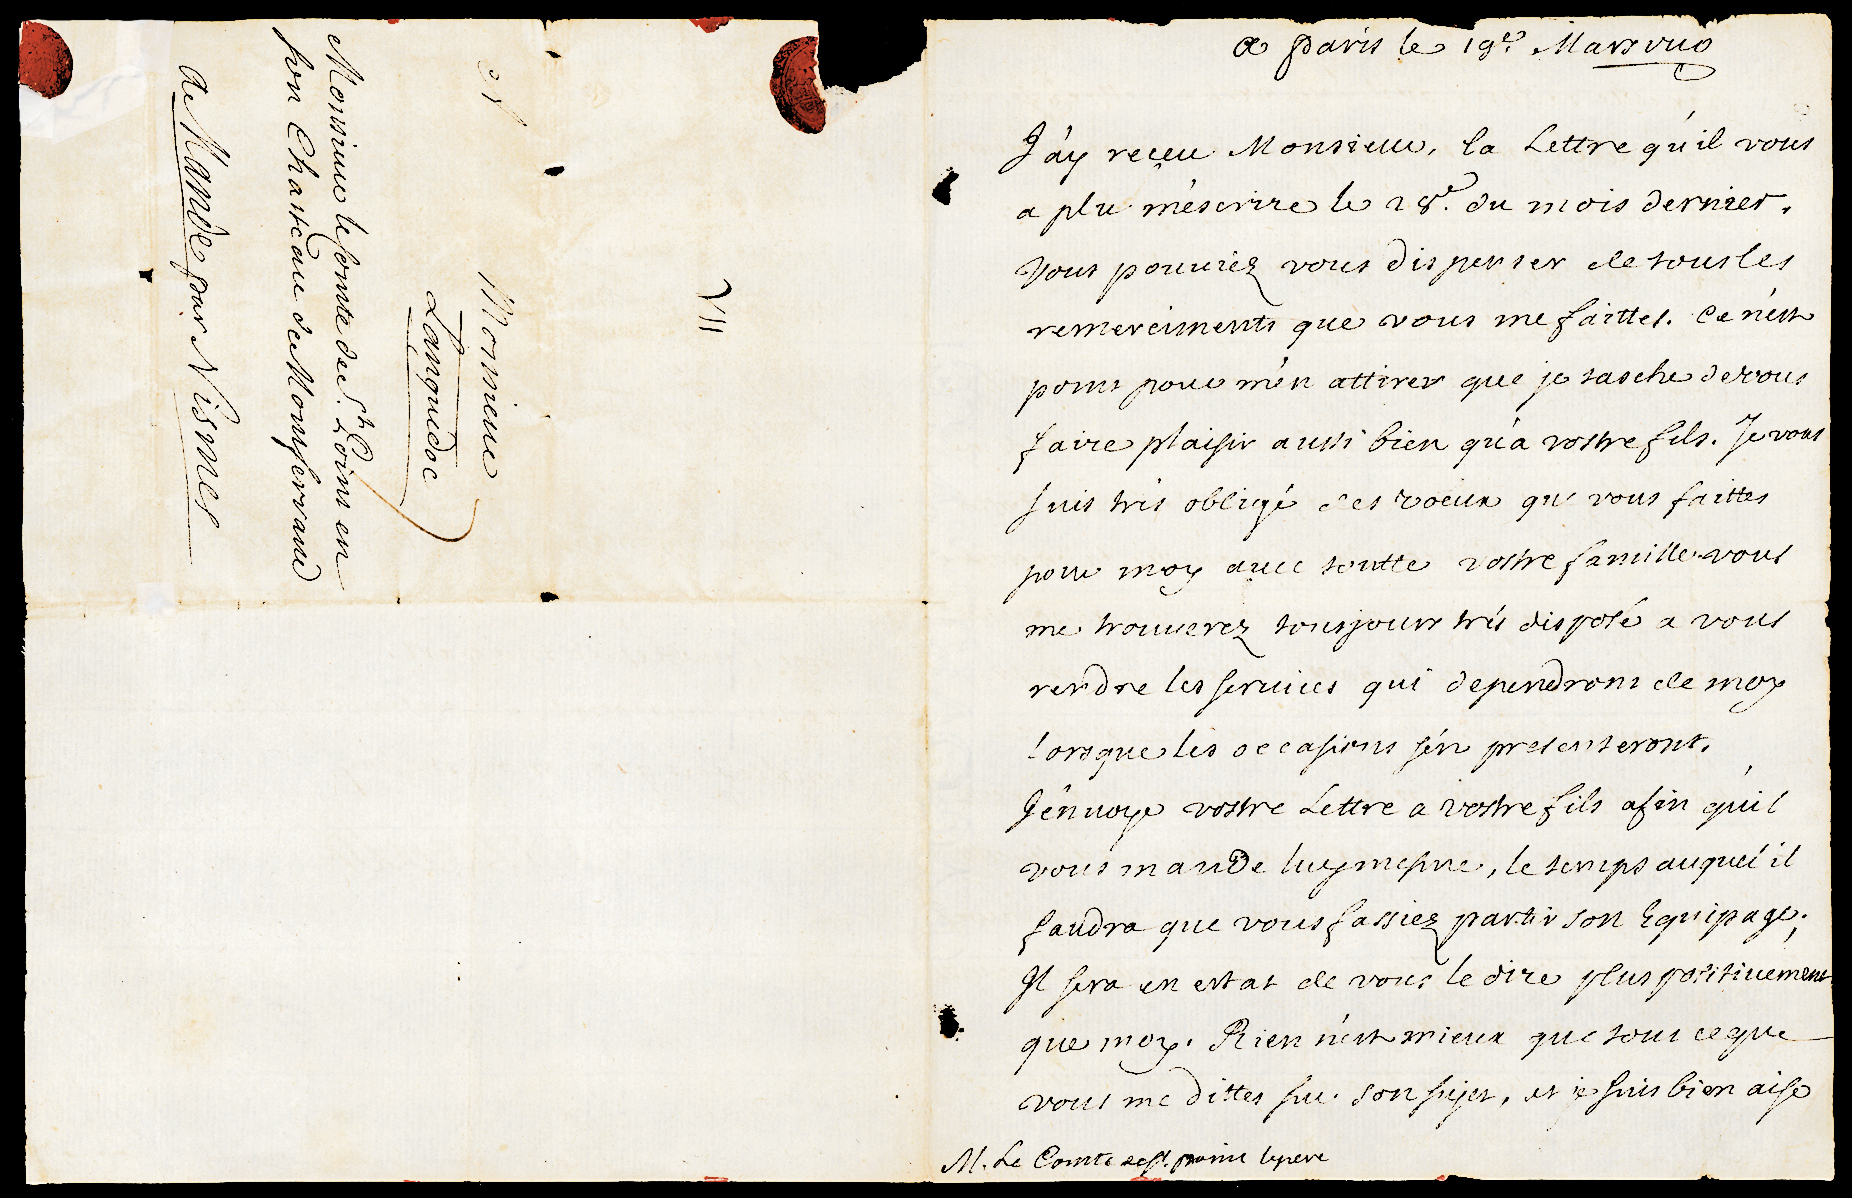 A
Monsieur
Monsieur le Comte de St. Point en
son Chasteau de Montferrand
Languedoc
de Mande par Nismes
VII
a paris le 19e. Mars
J'ay receu Monsieur, la Lettre qu'il vous
a plu m'éscrire le 28e. du mois dernier.
Vous pouuiez vous dispenser de tous les
remerciments que vous me faittes. Ce n'est
point pour m'en attirer que je tasche de vous
faire plaisir aussi bien qu'a vostre fils. Je vous
suis trés obligé des voeux que vous faittes
pour moy auec toutte vostre famille. vous
me trouuerez tousjours trés disposé a vous
rendre les seruices qui dependront de moy
lorsque les occasions s'én presenteront.
J'énuoye vostre Lettre a vostre fils afin qu'il
vous mande luymesme, le temps auquel il
faudra que vous fassiez partir son Equipage;
Il sera en estat de vous le dire plus positiuement
que moy. Rien n'est mieux que tout ce que
vous me dittes sur son sujet, et je suis bien aise
M. Le Comte de St. point le pere